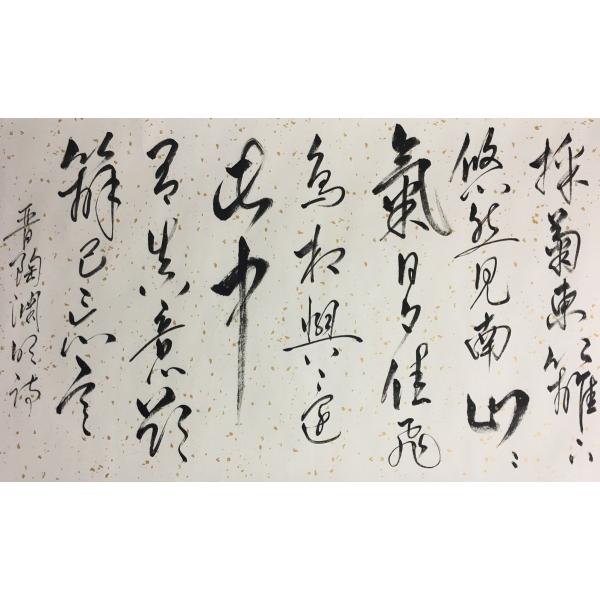 採菊東籬下
悠然見南山〻
氣日夕佳飛
鳥相與〻還
此中
有真意欲
辨已忘言
晉陶淵明詩